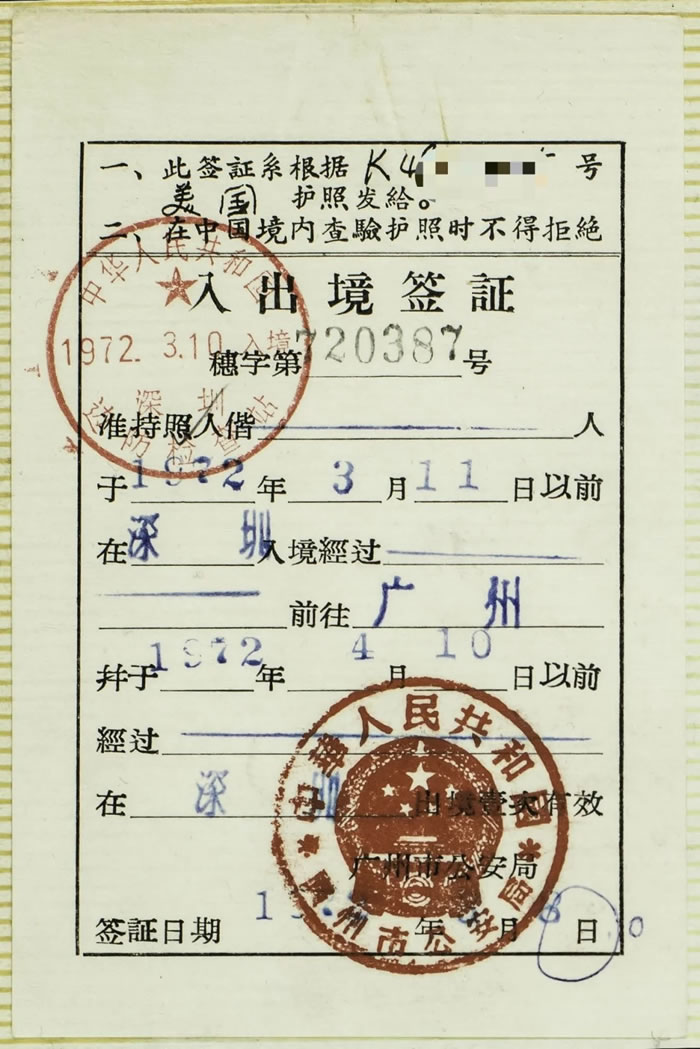 一、此签証系根据 K4 号
美国 护照发给。
二、在中国境内查驗护照时不得拒絶
入出境签証
中华人民共和国
1972. 3.10 入境
深圳
边防检查站
穗字第720387号
准持照人偕 人
于1972年3月11日以前
在深圳入境經过
前往广州
幷于1972年4月10日以前
經过
在深圳出境壹次有效
中華人民共和国
广州市公安局
广州市公安局
签証日期 年 月 8日